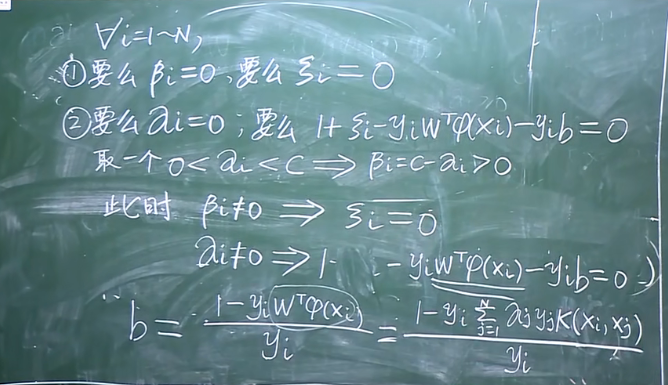 ∀i=1~N,
①要么 βi=0,要么 ξi=0
②要么 αi=0;要么 1+ξi-yiWᵀφ(xi)-yib=0
取一个 0<αi<C ⟹ βi=C-αi>0
此时 βi≠0 ⟹ ξi=0
αi≠0 ⟹ 1- yiWᵀφ(xi)-yib=0
b = (1-yiWᵀφ(xi))/yi = (1-yi∑_{j=1}^{N} αjyjK(xi,xj))/yi